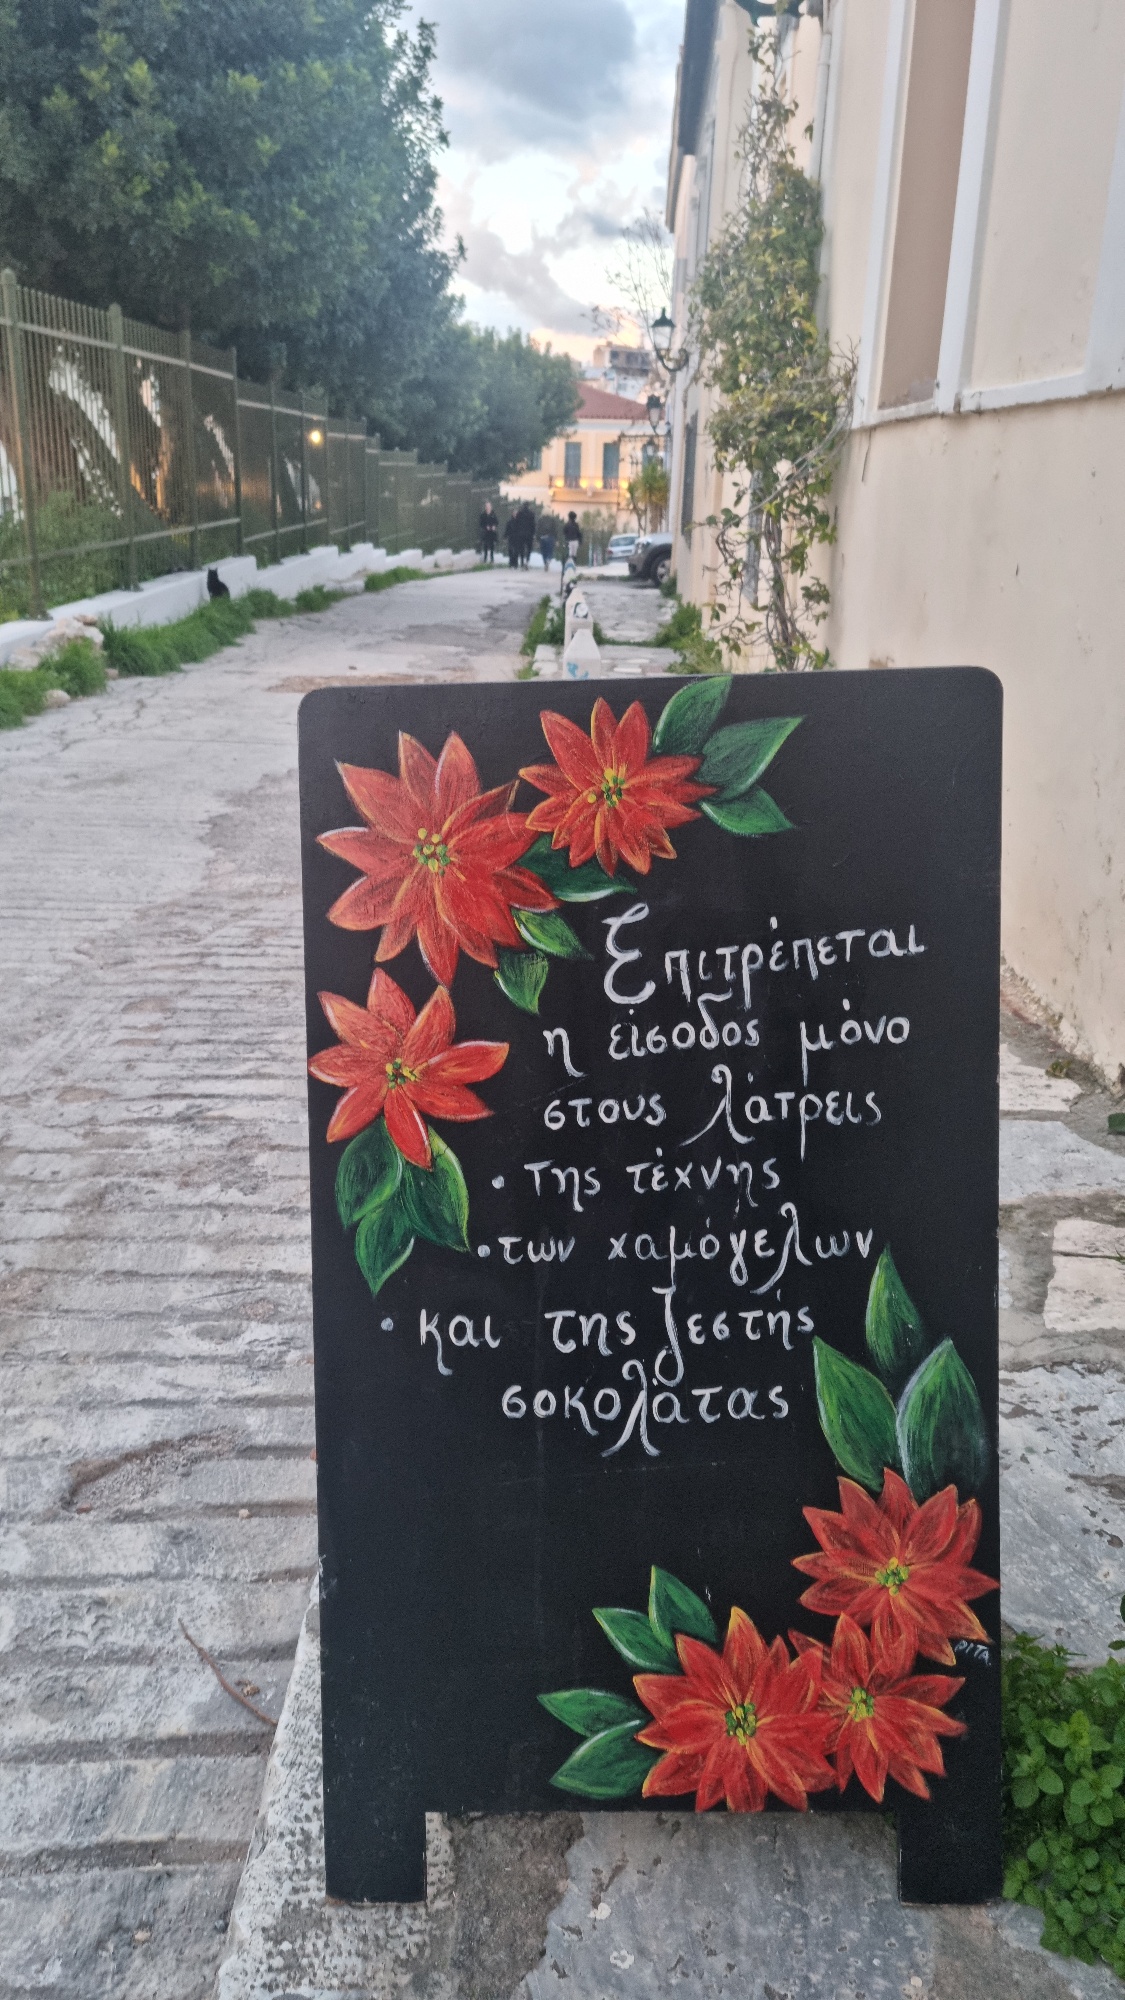 Επιτρέπεται
η είσοδος μόνο
στους λάτρεις
• της τέχνης
• των χαμόγελων
• και της ζεστής
σοκολάτας
ΡΙΤΑ